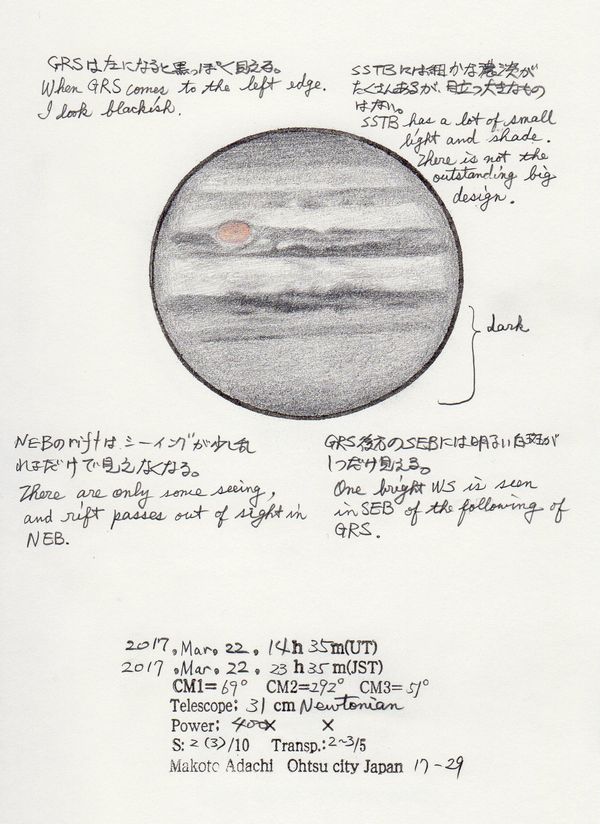 GRSは左になると黒っぽく見える。
When GRS comes to the left edge.
I look blackish.
SSTBには細かな濃淡が
たくさんあるが、目立つ大きなもの
はない。
SSTB has a lot of small
light and shade.
There is not the
outstanding big
design.
dark
NEBのriftは、シーイングが少し乱
れるだけで見えなくなる。
There are only some seeing,
and rift passes out of sight in
NEB.
GRS後方のSEBには明るい白斑が
1つだけ見える。
One bright WS is seen
in SEB of the following of
GRS.
2017. Mar. 22. 14h 35m(UT)
2017. Mar. 22. 23h 35m(JST)
CM1=69° CM2=292° CM3=51°
Telescope: 31 cm Newtonian
Power: 400× ×
S: 2(3)/10 Transp.: 2~3/5
Makoto Adachi Ohtsu city Japan 17-29